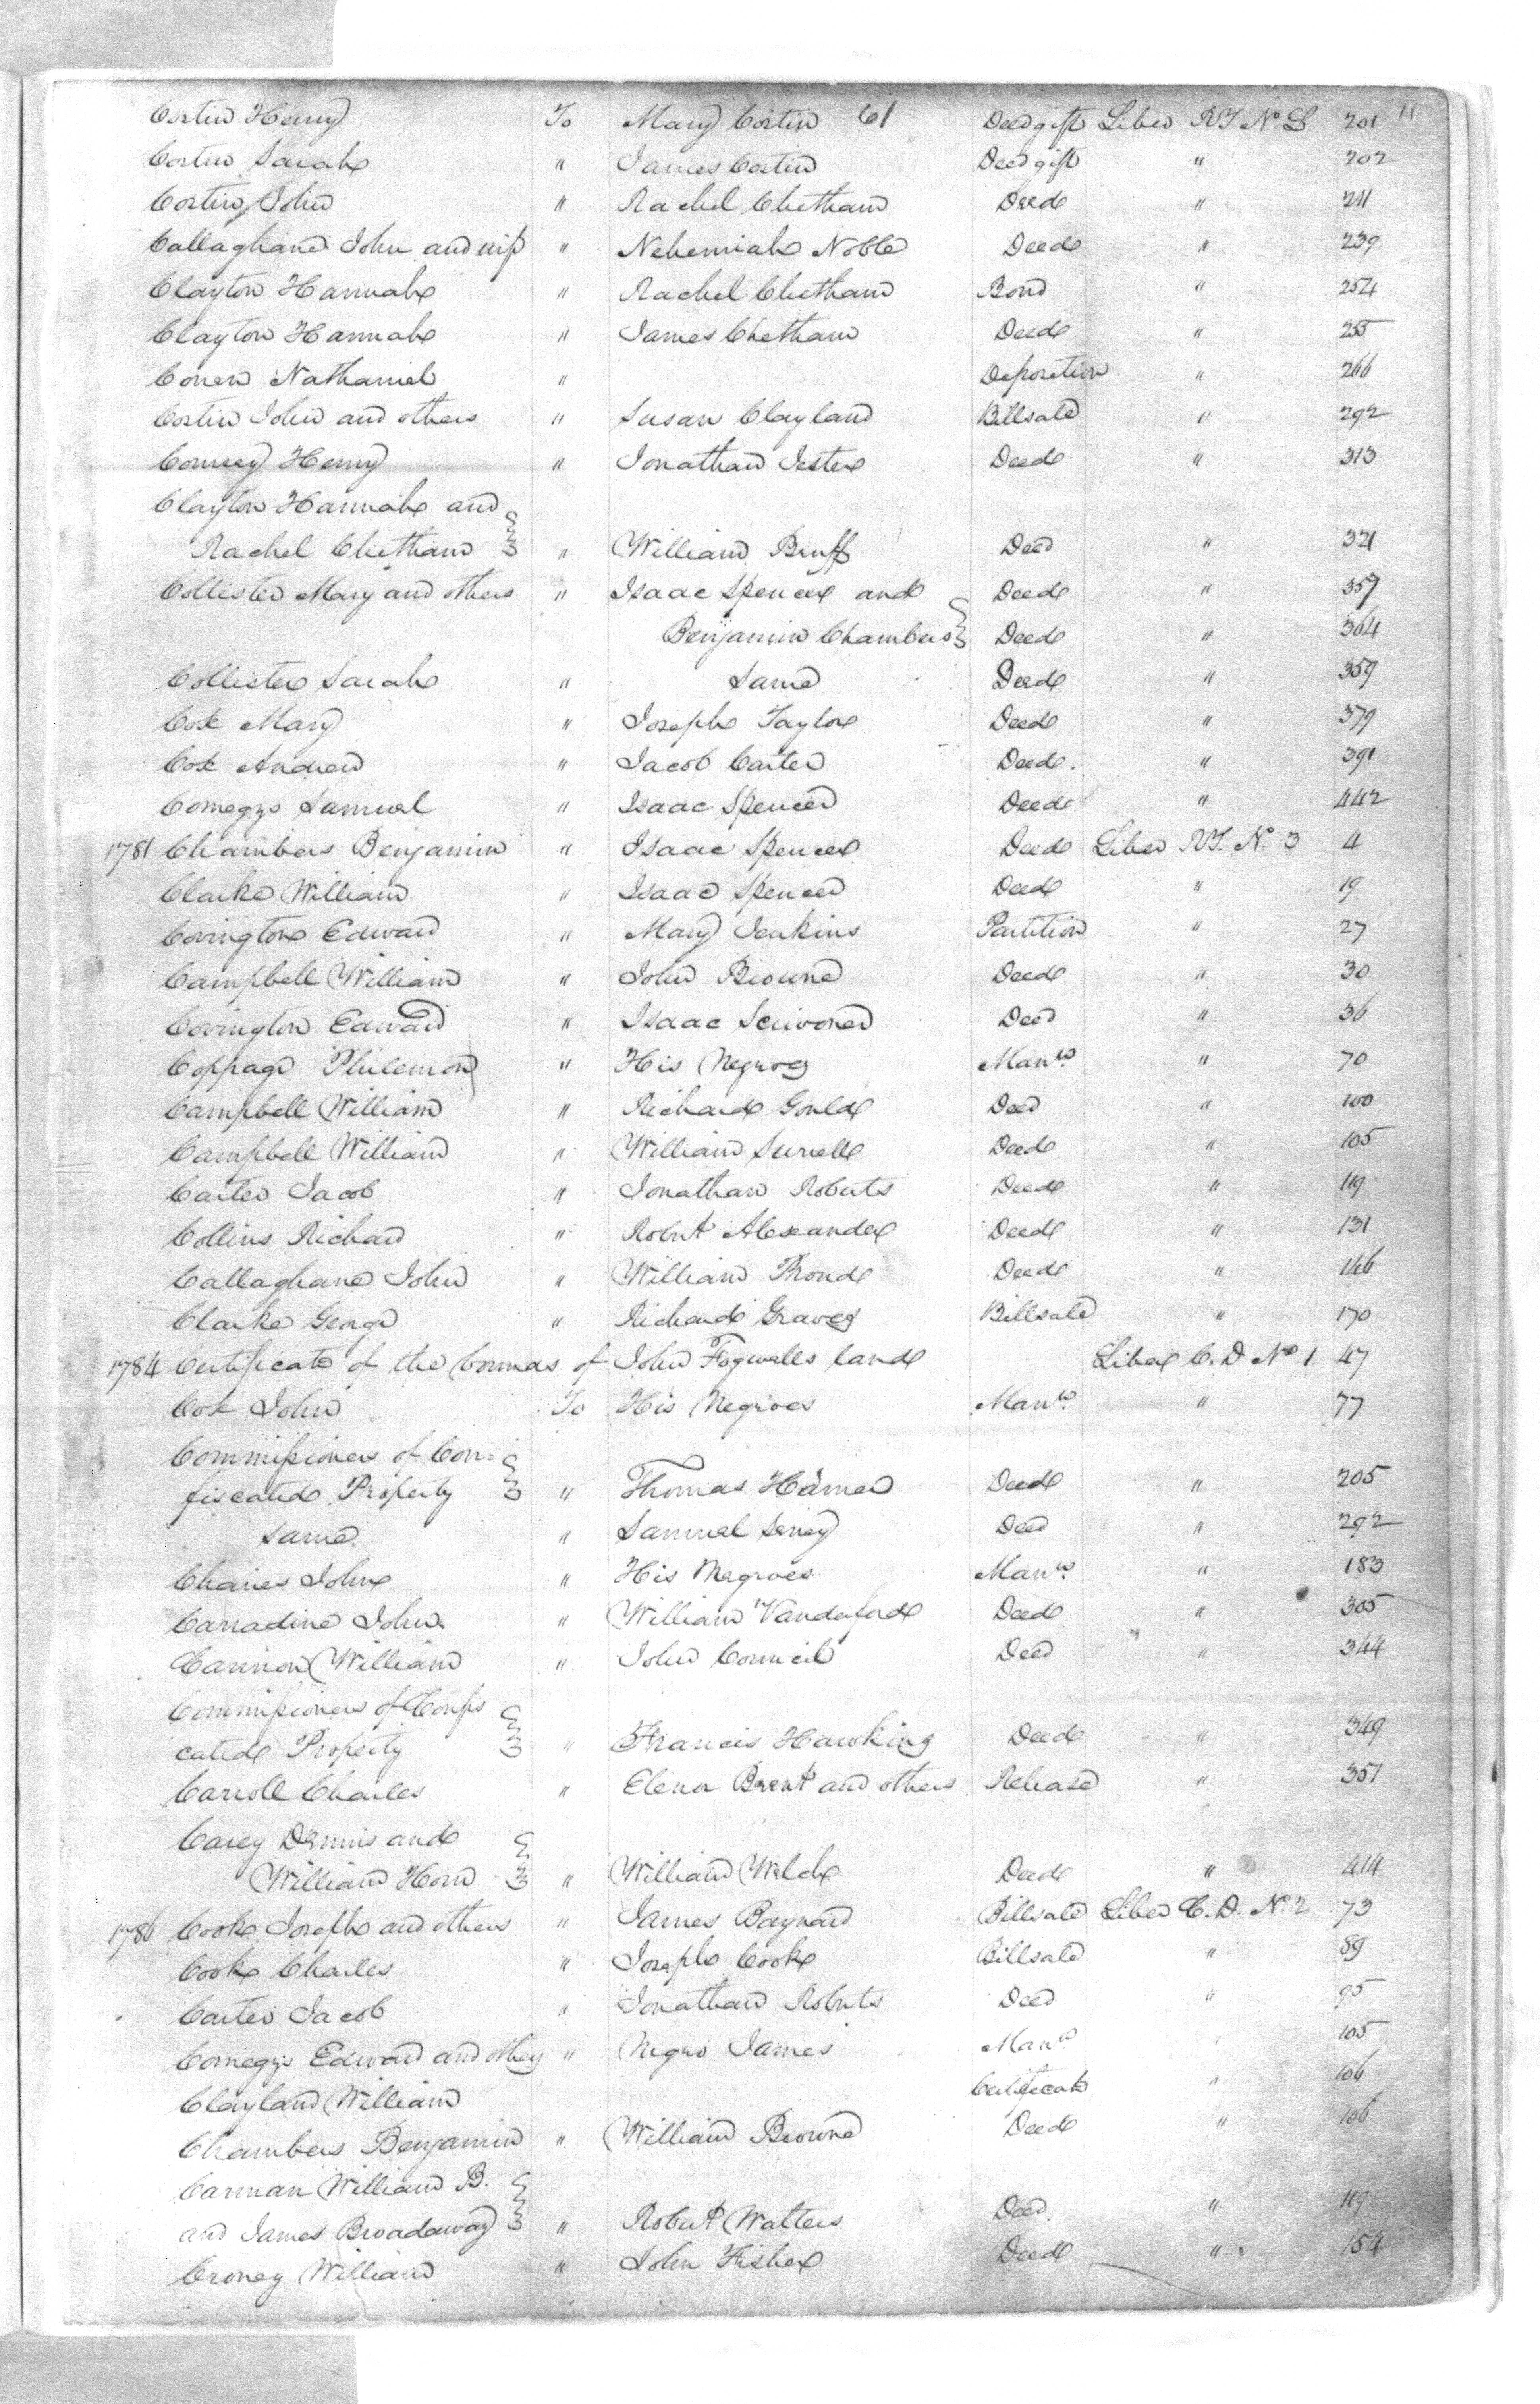 Costin Henry To Mary Costin 61 Deed gift Liber RT No L 201 11
Costin Sarah " James Costin Deed gift " 202
Costin John " Rachel Chetham Deed " 211
Callaghane John and wife " Nehemiah Noble Deed " 239
Clayton Hannah " Rachel Chetham Bond " 254
Clayton Hannah " James Chetham Deed " 255
Conen Nathaniel " Deposetion " 266
Costin John and others " Susan Clayland Billsale " 292
Comsey Henry " Jonathan Jester Deed " 313
Clayton Hannah and
Rachel Chetham " William Bruff Deed " 321
Collister Mary and others " Isaac Spencer and Deed " 357
Benjamin Chambers Deed " 364
Collister Sarah " Same Deed " 359
Cox Mary " Joseph Taylor Deed " 379
Cox Andrew " Jacob Carter Deed. " 391
Comegys Samuel " Isaac Spencer Deed " 442
1781 Chambers Benjamin " Isaac Spencer Deed Liber RT. No. 3 4
Clarke William " Isaac Spencer Deed " 19
Covington Edward " Mary Jenkins Partition " 27
Campbell William " John Browne Deed " 30
Covington Edward " Isaac Scrivoner Deed " 36
Coppage Philemon " His Negroes Mann. " 70
Campbell William " Richard Gould Deed " 100
Campbell William " William Surrell Deed " 105
Carter Jacob " Jonathan Roberts Deed " 119
Collins Richard " Robert Alexander Deed " 131
Callaghane John " William Proud Deed " 146
Clarke George " Richard Graves Billsale " 170
1784 Certificate of the bounds of John Fogwells land Liber C. D No 1. 47
Cox John To His Negroes Mann. " 77
Commissioners of Con=
fiscated Property " Thomas Hamer Deed " 205
Same " Samuel Seney Deed " 292
Chaires John " His Negroes Mann. " 183
Carradine John " William Vandeford Deed " 305
Cannon William " John Council Deed " 344
Commissioners of Confis
cated Property " Francis Hawkins Deed " 349
Carroll Charles " Elenor Brent and others Release " 351
Carey Dennis and
William Horn " William Welch Deed " 414
1786 Cooke Joseph and others " James Baynard Billsale Liber C. D. No. 2 73
Cooke Charles " Joseph Cooke Billsale " 89
Carter Jacob " Jonathan Roberts Deed " 95
Comegys Edward and others " Negro James Mann. " 105
Clayland William Certificate " 106
Chambers Benjamin " William Browne Deed " 106
Carman William B.
and James Broadaway " Robert Walters Deed. " 119
Croney William " John Fisher Deed " 154